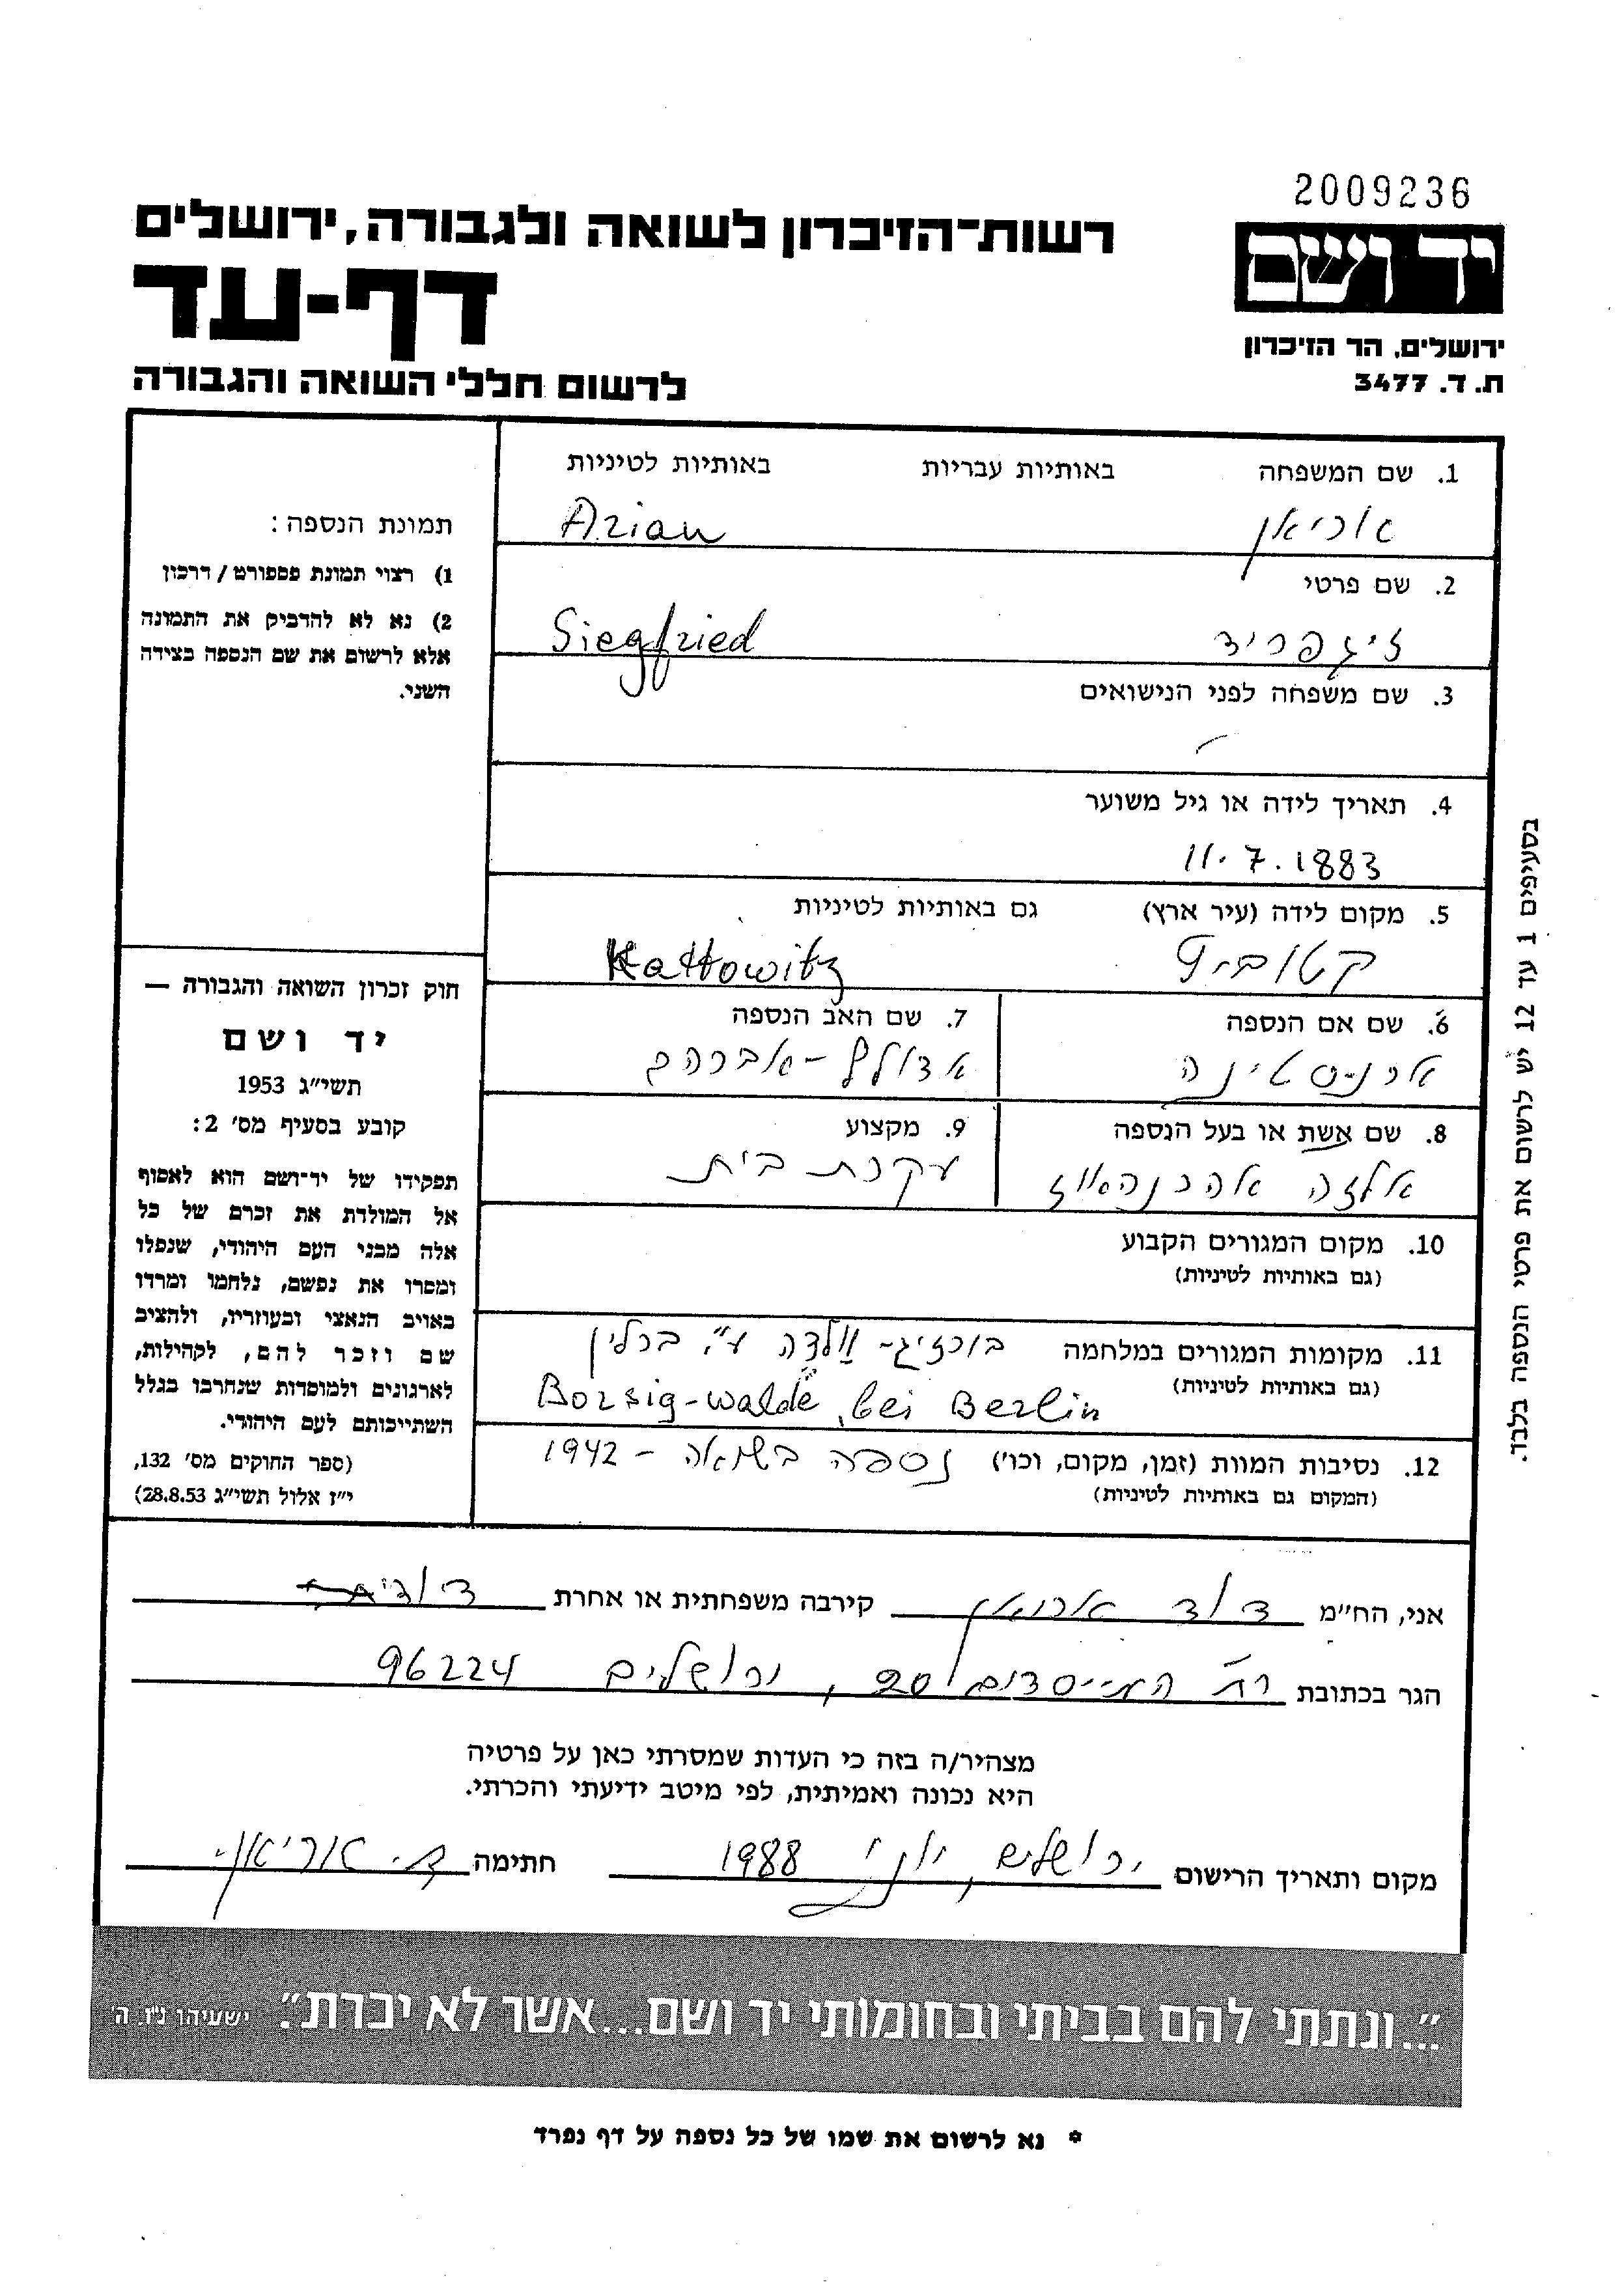 2009236
יד ושם
רשות־הזיכרון לשואה ולגבורה, ירושלים
דף-עד
ירושלים, הר הזיכרון
ת. ד. 3477
לרשום חללי השואה והגבורה
1. שם המשפחה באותיות עבריות באותיות לטיניות
אריאן Arian
2. שם פרטי
זיגפריד Siegfried
3. שם משפחה לפני הנישואים
4. תאריך לידה או גיל משוער
11.7.1883
5. מקום לידה (עיר ארץ) גם באותיות לטיניות
קטוביץ Kattowitz
6. שם אם הנספה
ארנסטינה
7. שם האב הנספה
אדולף - אברהם
8. שם אשת או בעל הנספה
אלזה
9. מקצוע
עקרת בית
10. מקום המגורים הקבוע
(גם באותיות לטיניות)
11. מקומות המגורים במלחמה בורזיג-וולדה ע"י ברלין
(גם באותיות לטיניות) Borsig-walde, bei Berlin
12. נסיבות המוות (זמן, מקום, וכו') נספה בשואה - 1942
(המקום גם באותיות לטיניות)
תמונת הנספה:
1) רצוי תמונת פספורט / דרכון
2) נא לא להדביק את התמונה
אלא לרשום את שם הנספה בצידה
השני.
חוק זכרון השואה והגבורה —
יד ושם
תשי״ג 1953
קובע בסעיף מס׳ 2:
תפקידו של יד־ושם הוא לאסוף
אל המולדת את זכרם של כל
אלה מבני העם היהודי, שנפלו
ומסרו את נפשם, נלחמו ומרדו
באויב הנאצי ובעוזריו, ולהציב
שם וזכר להם, לקהילות,
לארגונים ולמוסדות שנחרבו בגלל
השתייכותם לעם היהודי.
(ספר החוקים מס׳ 132,
י״ז אלול תשי״ג 28.8.53)
בסעיפים 1 עד 12 יש לרשום את פרטי הנספה בלבד.
אני, הח״מ דוד אריאן קירבה משפחתית או אחרת
הגר בכתובת רח' המייסדים 20, ירושלים 96224
מצהיר/ה בזה כי העדות שמסרתי כאן על פרטיה
היא נכונה ואמיתית, לפי מיטב ידיעתי והכרתי.
מקום ותאריך הרישום ירושלים, יוני 1988 חתימה ד. אריאן
״...ונתתי להם בביתי ובחומותי יד ושם...אשר לא יכרת״. ישעיהו נ״ו, ה׳
* נא לרשום את שמו של כל נספה על דף נפרד